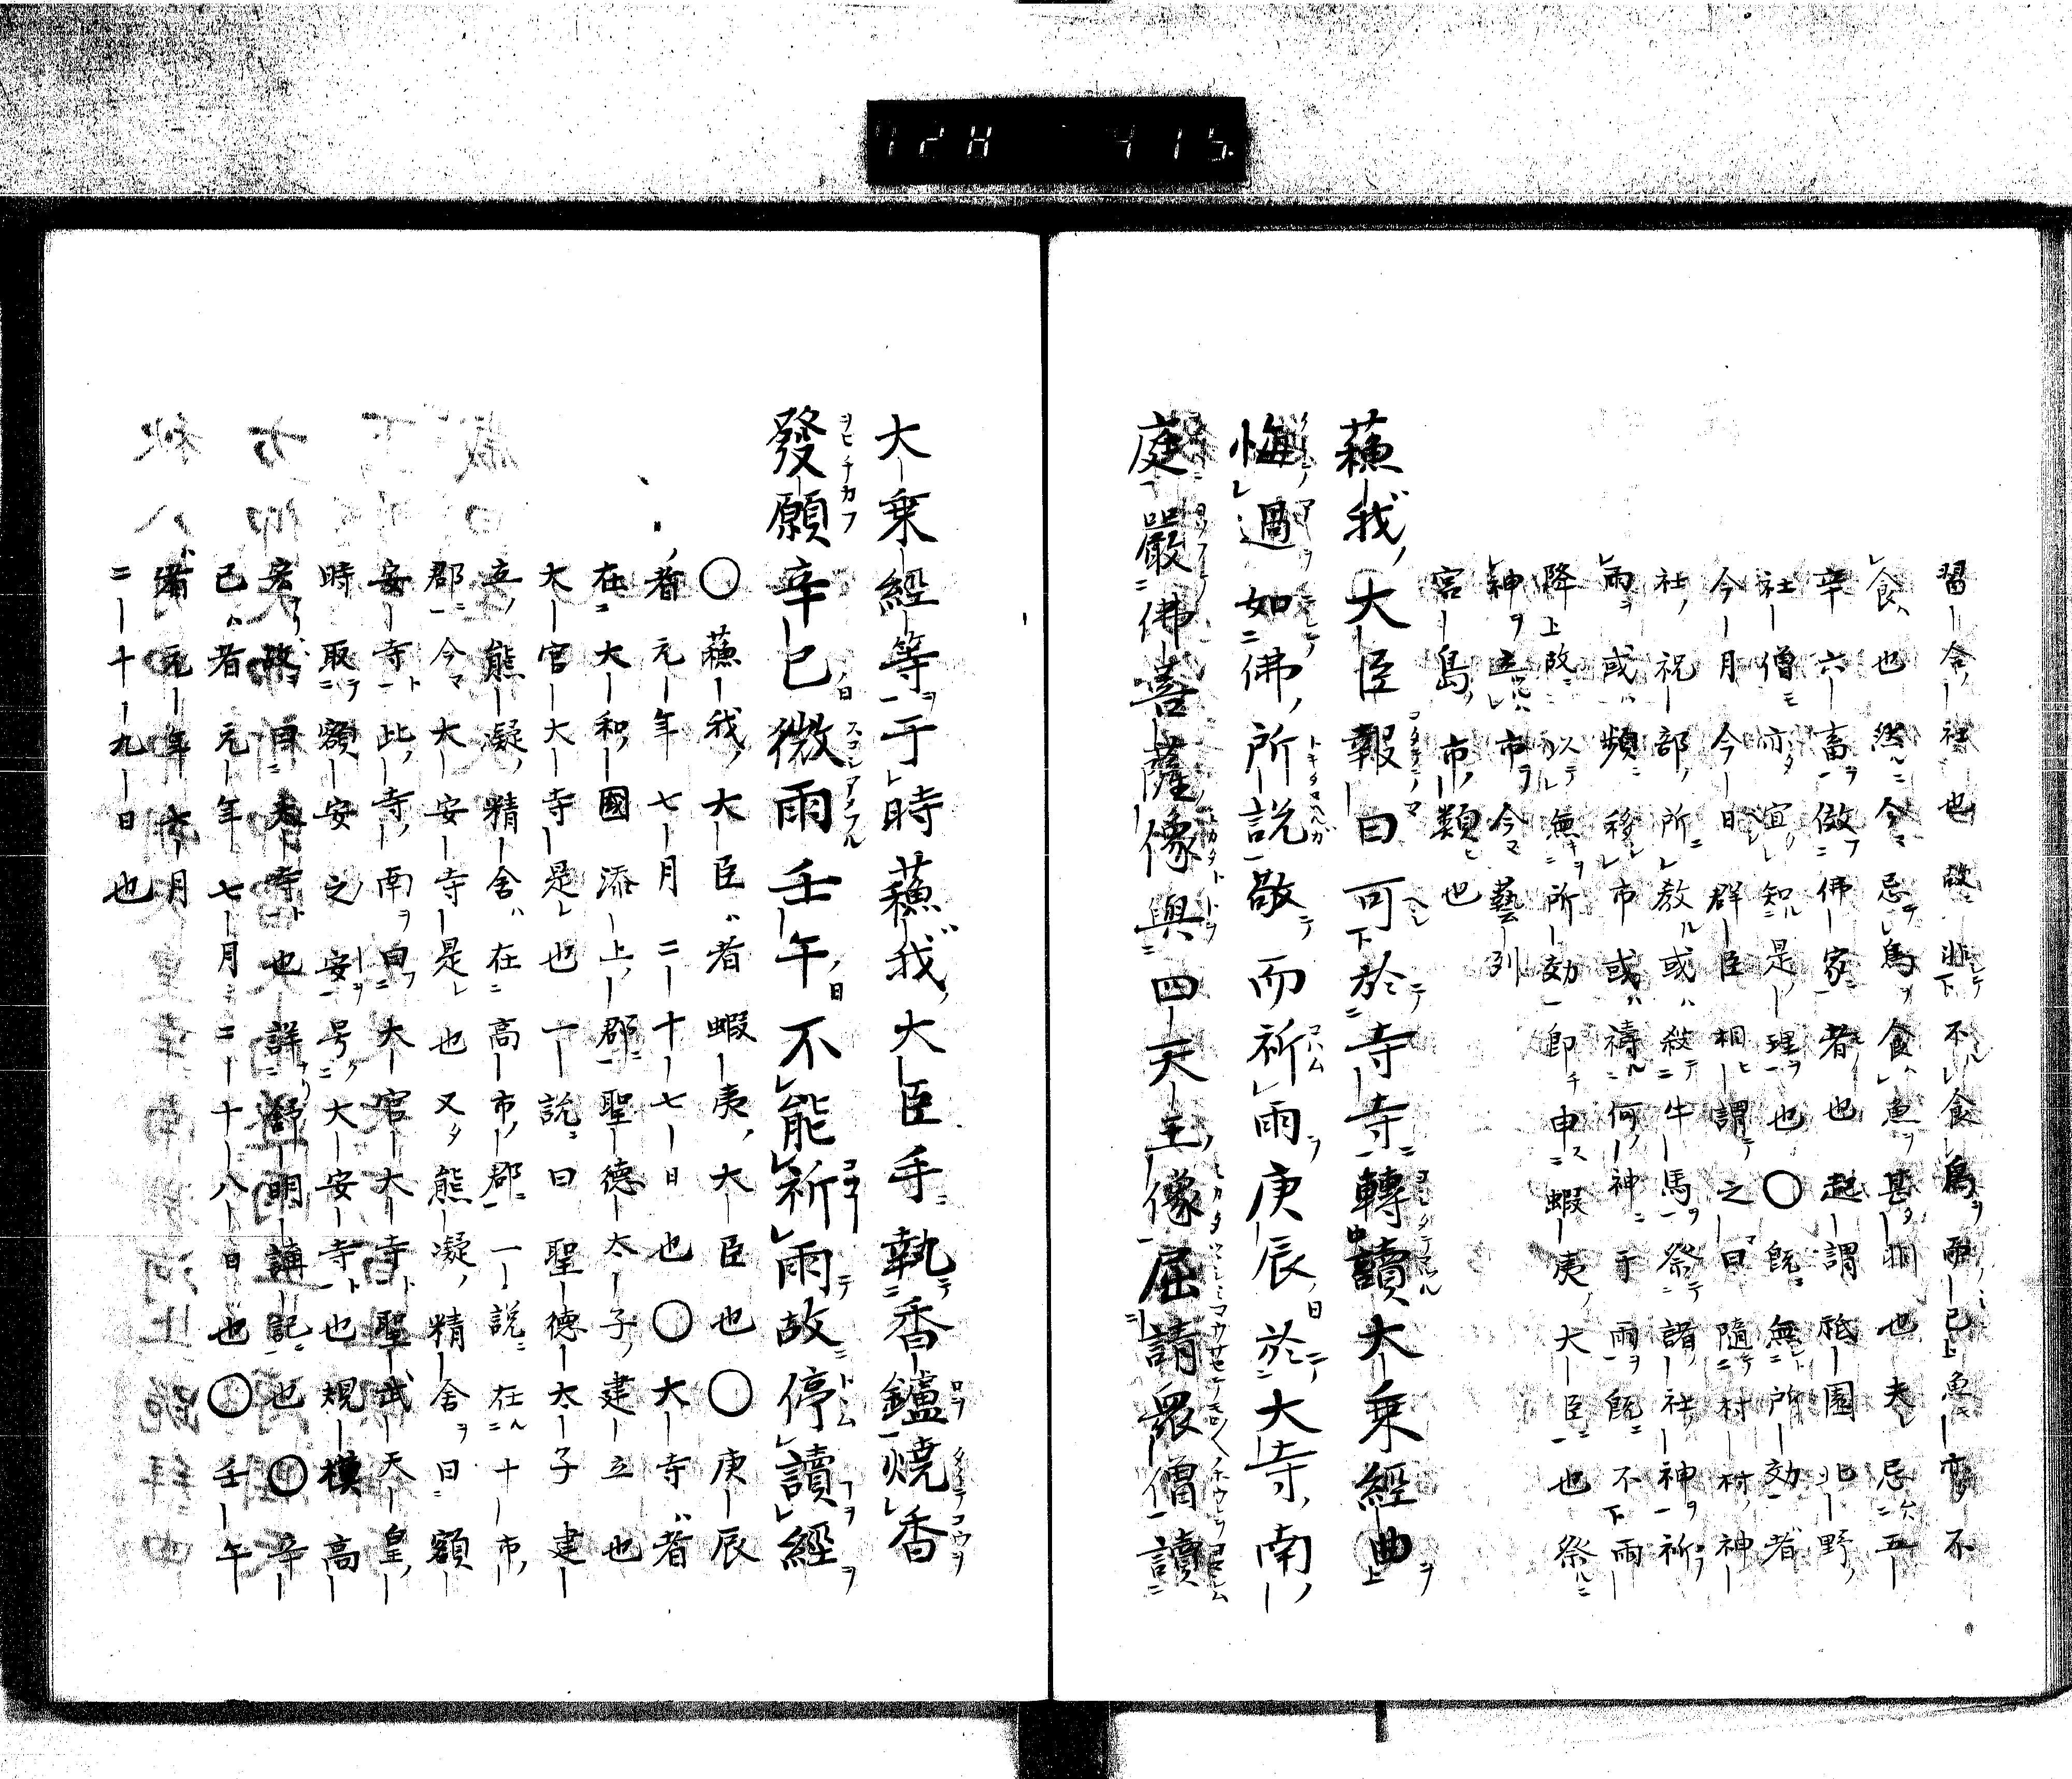 習合社也故非不食鳥而已上魚亦不
食也然今忌鳥食食魚甚非也夫忌五
辛六畜倣佛家者也起謂祗園北野
社僧亦宜知是理也〇既無所効者
今月今日群臣相謂之曰隨村村神
社祝部所教或殺牛馬祭諸社神祈
雨或頻移市或禱何神于雨既不雨
降上故以無所効即申蝦夷大臣也祭
神立市今藝列
宮島市類也
蘓我大臣報曰可於寺寺轉讀大乗經典
悔過如佛所説敬而祈雨庚辰於大寺南
庭嚴佛菩薩像與四天王像屈請衆僧讀
大乗經等于時蘓我大臣手執香鑪焼香
發願辛巳微雨壬午不能祈雨故停讀經
〇蘓我大臣者蝦夷大臣也〇庚辰
者元年七月二十七日也〇大寺者
在大和國添上郡聖德太子建立也
大官大寺是也一説曰聖德太子建
立熊凝精舍在高市郡一説在十市
郡今大安寺是也又熊凝精舍曰額
安寺此寺南曰大官大寺聖武天皇
時取額安之安号大安寺也規模高
宏故曰大寺也詳舒明講記也〇辛
巳者元年七月二十八日也〇壬午
者元年七月
二十九日也